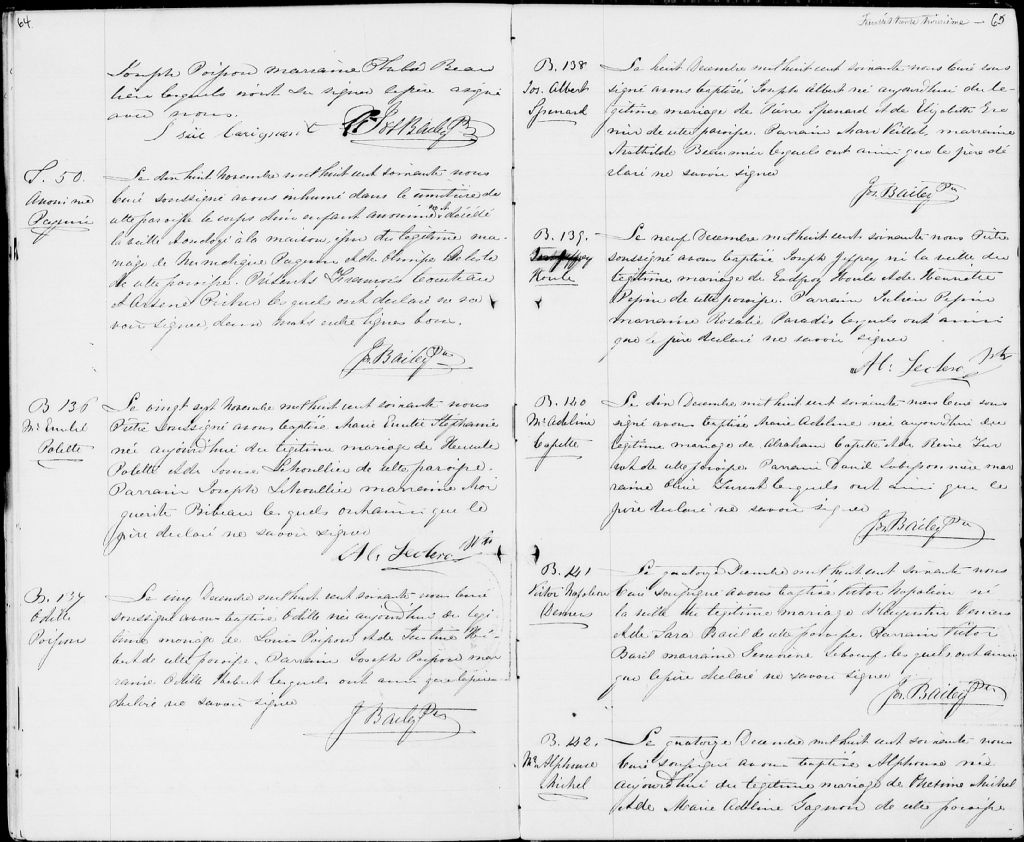 64
Joseph Poisson marraine Thaïs Beau
lieu lesquels n'ont su signer le père signé
avec nous.
Jos Bailey Ptr
S. 50.
Anonime
Paquin
Le dix huit Novembre mil huit cent soixante nous
Curé soussigné avons inhumé dans le cimetière de
cette paroisse le corps d'un enfant anonime décédé
la veille à la maison, issu du légitime ma-
riage de Paquin et de Olimpe
de cette paroisse. Présents François
et Arsène lesquels ont déclaré ne sa
voir signer, deux mots entre lignes bon.
Jos. Bailey Ptr
B 136
Me Emelie
Polette
Le vingt sept Novembre mil huit cent soixante nous
Prêtre soussigné avons baptisé Marie Emelie Stephanie
née aujourd'hui du légitime mariage de Hercule
Polette et de Louise Lehoullier de cette paroisse.
Parrain Joseph Lehoullier marraine Mar
guerite Bibeau lesquels ont ainsi que le
père déclaré ne savoir signer
Al. Leclerc Ptr
B. 137
Odille
Poisson
Le cinq Decembre mil huit cent soixante nous Curé
soussigné avons baptisé Odille née aujourd'hui du légi
time mariage de Louis Poisson et de Justine Hé
bert de cette paroisse. Parrain Joseph Poisson mar
raine Odille Hebert lesquels ont ainsi que le père
déclaré ne savoir signer
J Bailey Ptr
Feuillet trente troisième — 65
B. 138
Jos. Albert
Spenard
Le huit Decembre mil huit cent soixante nous Curé sous
signé avons baptisé Joseph Albert né aujourd'hui du lé-
gitime mariage de Pierre Spenard et de Elizabeth
de cette paroisse. Parrain Marc Veillet, marraine
Mathilde Beaumier lesquels ont ainsi que le père dé
claré ne savoir signer
Jos. Bailey Ptr
B. 139.
Houle
Le neuf Decembre mil huit cent soixante nous Prêtre
soussigné avons baptisé Joseph Jeffrey né la veille du
légitime mariage de Houle et de Henriette
Pepin de cette paroisse. Parrain Julien Pepin
marraine Rosalie Paradis lesquels ont ainsi
que le père déclaré ne savoir signer
Al. Leclerc Ptr
B. 140
Me Adeline
Capette
Le dix Decembre mil huit cent soixante nous Curé sous
signé avons baptisé Marie Adeline née aujourd'hui du
légitime mariage de Abraham Capette et de Reine
de cette paroisse. Parrain David mar
raine Olive lesquels ont ainsi que le
père déclaré ne savoir signer
Jos. Bailey Ptr
B. 141
Victor Napoléon
Demers
Le quatorze Decembre mil huit cent soixante nous
Curé soussigné avons baptisé Victor Napoléon né
la veille du légitime mariage d'Augustin Demers
et de Sara Baril de cette paroisse. Parrain Victor
Baril marraine Geneviève Leboeuf lesquels ont ainsi
que le père déclaré ne savoir signer
Jos. Bailey Ptr
B. 142.
Me Alphonse
Michel
Le quatorze Decembre mil huit cent soixante nous
Curé soussigné avons baptisé Alphonse né
aujourd'hui du légitime mariage de Onesime Michel
et de Marie Adeline Gagnon de cette paroisse